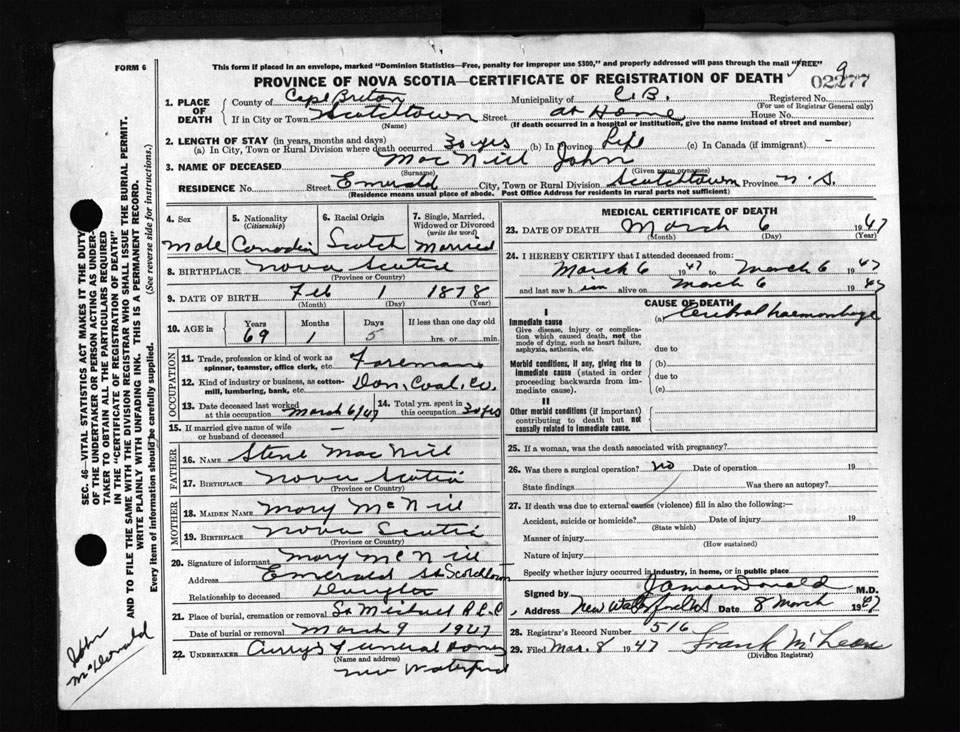 FORM 6
This form if placed in an envelope, marked "Dominion Statistics—Free, penalty for improper use $300," and properly addressed will pass through the mail "FREE"
9
PROVINCE OF NOVA SCOTIA—CERTIFICATE OF REGISTRATION OF DEATH
02277
1. PLACE OF DEATH
County of Cape Breton Municipality of C.B. Registered No.
(For use of Registrar General only)
If in City or Town Scotchtown Street at Home House No.
(Name) (If death occurred in a hospital or institution, give the name instead of street and number)
2. LENGTH OF STAY (in years, months and days)
(a) In City, Town or Rural Division where death occurred 30 yrs (b) In Province Life (c) In Canada (if immigrant) -
3. NAME OF DECEASED Mac Neil John
(Surname) (Given name or names)
RESIDENCE No. Street Emerald City, Town or Rural Division Scotchtown Province N.S.
(Residence means usual place of abode. Post Office Address for residents in rural parts not sufficient)
4. Sex
Male
5. Nationality
(Citizenship)
Canadian
6. Racial Origin
Scotch
7. Single, Married, Widowed or Divorced
(write the word)
Married
8. BIRTHPLACE Nova Scotia
(Province or Country)
9. DATE OF BIRTH Feb 1 1878
(Month) (Day) (Year)
10. AGE in
Years Months Days If less than one day old
69 1 5 hrs. or min.
OCCUPATION
11. Trade, profession or kind of work as spinner, teamster, office clerk, etc. Foreman
12. Kind of industry or business, as cotton-mill, lumbering, bank, etc. Dom. Coal Co.
13. Date deceased last worked at this occupation March 6/47
14. Total yrs. spent in this occupation 30 yrs
15. If married give name of wife or husband of deceased -
FATHER
16. NAME Steve Mac Neil
17. BIRTHPLACE Nova Scotia
(Province or Country)
MOTHER
18. MAIDEN NAME Mary McNeil
19. BIRTHPLACE Nova Scotia
(Province or Country)
20. Signature of informant Mary McNeil
Address Emerald St Scotchtown
Relationship to deceased Daughter
21. Place of burial, cremation or removal St Michael R.C.C
Date of burial or removal March 9 1947
22. UNDERTAKER Curry's Funeral Home
(Name and address)
New Waterford
MEDICAL CERTIFICATE OF DEATH
23. DATE OF DEATH March 6 1947
(Month) (Day) (Year)
24. I HEREBY CERTIFY that I attended deceased from:
March 6 1947 to March 6 1947
and last saw him alive on March 6 1947
CAUSE OF DEATH
I
Immediate cause
Give disease, injury or complication which caused death, not the mode of dying, such as heart failure, asphyxia, asthenia, etc.
(a) Cerebral haemorrhage
due to
Morbid conditions, if any, giving rise to immediate cause (stated in order proceeding backwards from immediate cause).
(b)
due to
(c)
II
Other morbid conditions (if important) contributing to death but not causally related to immediate cause.
25. If a woman, was the death associated with pregnancy?
26. Was there a surgical operation? no Date of operation 19
State findings Was there an autopsy?
27. If death was due to external causes (violence) fill in also the following:—
Accident, suicide or homicide? Date of injury 19
(State which)
Manner of injury
(How sustained)
Nature of injury
Specify whether injury occurred in industry, in home, or in public place
Signed by MacDonald M.D.
Address New Waterford Date 8 March 1947
28. Registrar's Record Number 516
29. Filed Mar. 8 1947 Frank McLean
(Division Registrar)
SEC. 46—VITAL STATISTICS ACT MAKES IT THE DUTY
OF THE UNDERTAKER OR PERSON ACTING AS UNDER-
TAKER TO OBTAIN ALL THE PARTICULARS REQUIRED
IN THE "CERTIFICATE OF REGISTRATION OF DEATH"
AND TO FILE THE SAME WITH THE DIVISION REGISTRAR WHO SHALL ISSUE THE BURIAL PERMIT.
WRITE PLAINLY WITH UNFADING INK. THIS IS A PERMANENT RECORD.
Every item of information should be carefully supplied. (See reverse side for instructions.)
John
McDonald